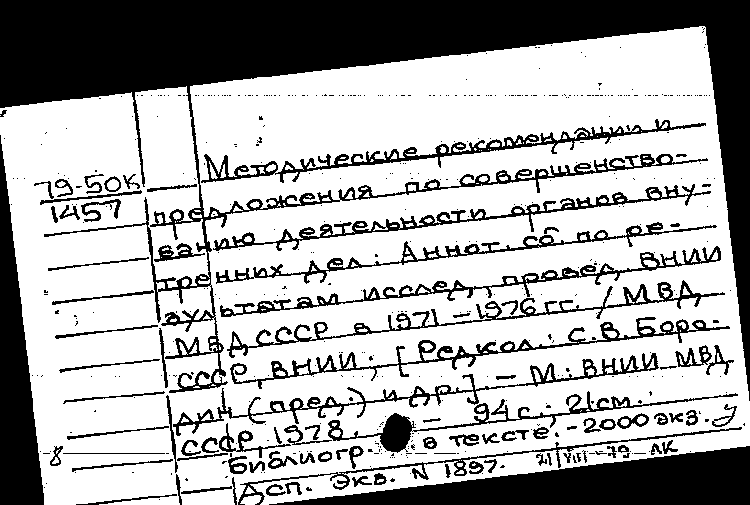 Методические рекомендации и
79-50К
1457
предложения по совершенство-
ванию деятельности органов вну-
тренних дел: Аннот. сб. по ре-
зультатам исслед., провед. ВНИИ
МВД СССР в 1971-1976 гг. / МВД
СССР, ВНИИ; [Редкол.: С.В. Боро-
дин (пред.) и др.]. - М.: ВНИИ МВД
СССР, 1978. - 94 с.; 21 см.
8
Библиогр. в тексте. - 2000 экз.
Дсп. Экз. N 1897. 21/VIII-79 ЛК